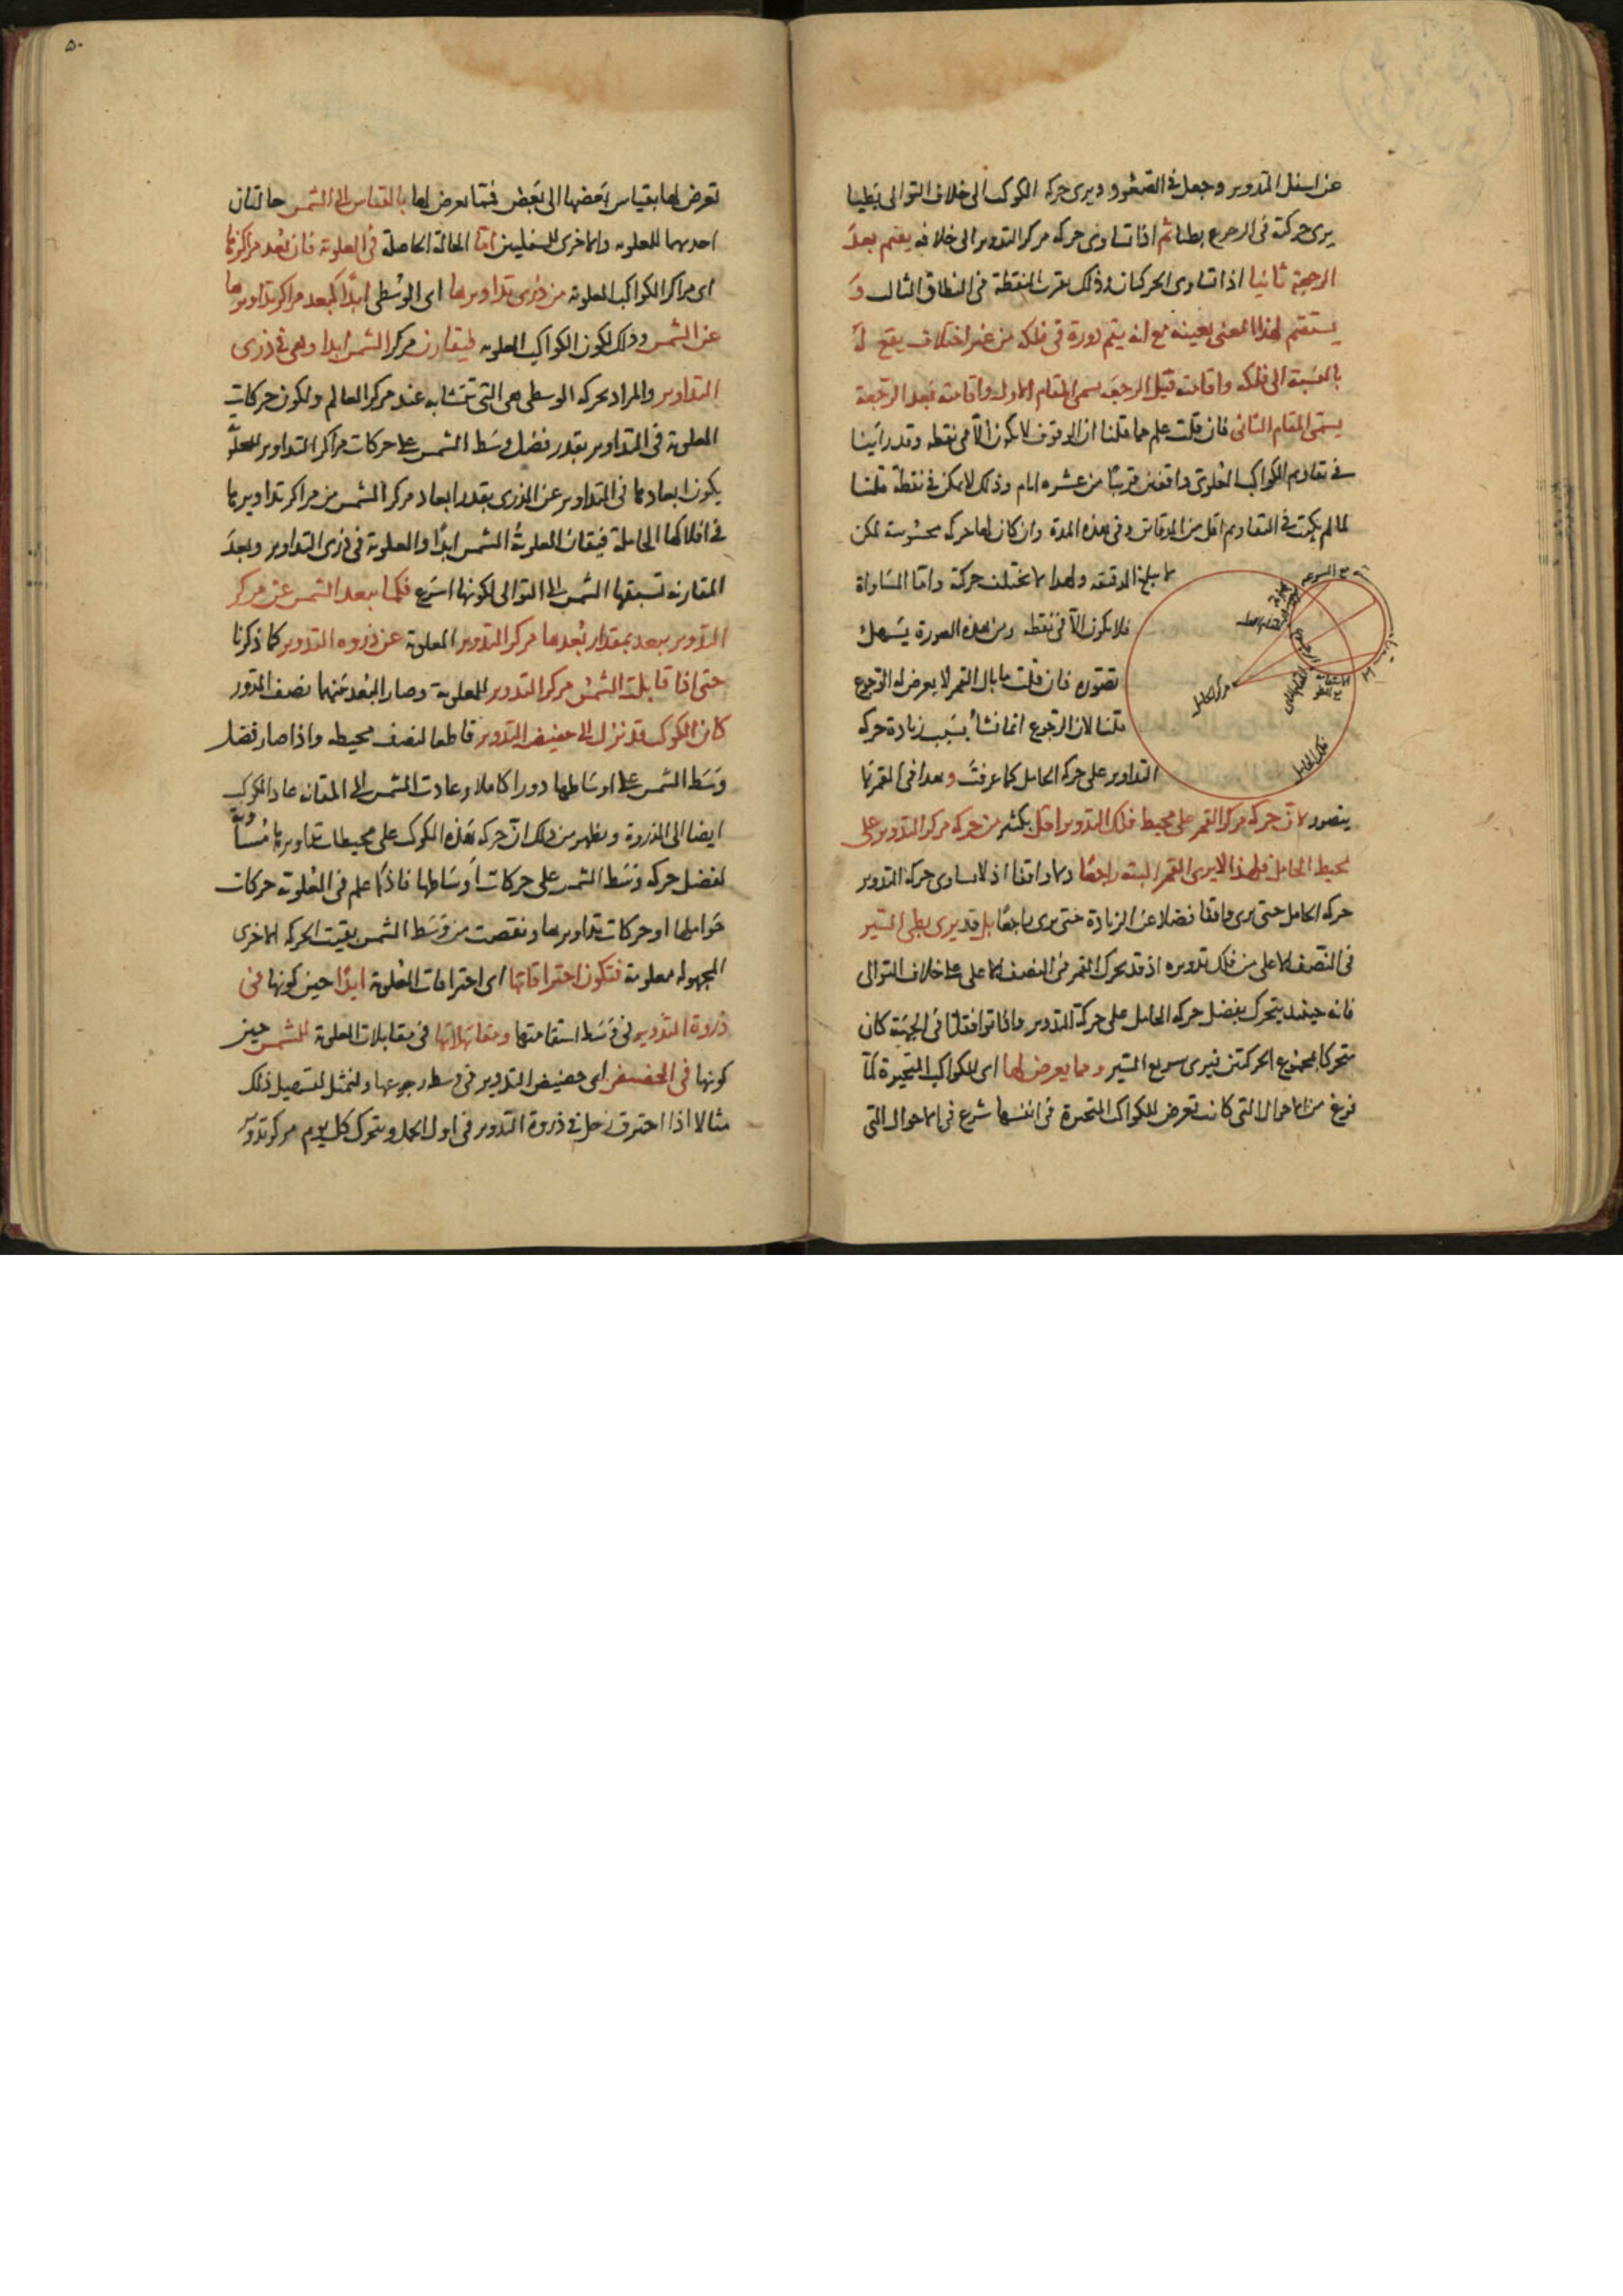 عن اسفل التدوير وجعل فى الصعود ويرى حركه الكوكب الى خلاف التوالى بطيئا
يرى حركته فى الرجوع بطئا ثم اذا تساوى حركه مركز التدوير الى خلافه يقيم بعد
الرجعة ثانيا اذا تساوى الحركتان وذلك بقرب النقطة فى النطاق الثالث و
يستقيم لهذا المعنى بعينه مع انه يتم دورة فى فلكه من غير اختلاف يقع له
بالنسبة الى فلكه واقامته قبل الرجعة يسمى المقام الاول واقامته بعد الرجعة
يسمى المقام الثانى فان قلت علم مما قلنا ان الوقوف لا يكون الا فى نقطه وقد راينا
فى تقاويم الكواكب العلوى واقفين قريبا من عشره ايام وذلك لا يمكن فى نقطة قلنا
لما لم يكتب فى التقاويم اقل من الدقائق وفى هذه المدة وان كان لها حركه محسوسة لكن
لا يبلغ الدقيقه ولهذا لا يختلف حركته واما المساواة
فلا يكون الا فى نقطه ومن هذه الصورة يسهل
تصوره فان قلت ما بال القمر لا يعرض له الرجوع
قلنا لان الرجوع انما نشأ بسبب زيادة حركه
التداوير على حركه الحامل كما عرفت وهذا فى القمر لا
يتصور لان حركه مركز القمر على محيط فلك التدوير اقل بكثير من حركه مركز التدوير على
محيط الحامل فلهذا لا يرى القمر البته راجعا ولا واقفا اذ لا يساوى حركه التدوير
حركه الحامل حتى يرى واقفا فضلا عن الزيادة حتى يرى راجعا بل قد يرى بطى السير
فى النصف الاعلى من فلك تدويره اذ قد يحرك القمر فى النصف الاعلى على خلاف التوالى
فانه حينئذ يتحرك بفضل حركه الحامل على حركه التدوير واذا توافقتا فى الجهة كان
متحركا بمجموع الحركتين فيرى سريع السير ومما يعرض لها اى للكواكب المتحيرة لما
فرغ من الاحوال التى كانت تعرض للكواكب المتحيرة فى انفسها شرع فى الاحوال التى
مركز الحامل
فلك الحامل
٥٠
تعرض لها بقياس بعضها الى بعض فمما يعرض لها بالقياس الى الشمس حالتان
احديهما للعلويه والاخرى للسفليين اما الحالة الحاصلة فى العلوية فان بعد مراكزها
اى مراكز الكواكب العلوية من ذرى تداويرها اى الوسطى ابدا كبعد مراكز تداويرها
عن الشمس وذلك لكون الكواكب العلويه يقارن مركز الشمس ابدا وهى فى ذرى
التداوير والمراد بحركه الوسطى هى التى تتشابه عند مركز العالم ولكون حركات
العلوية فى التداوير بقدر فضل وسط الشمس على حركات مراكز التداوير للعلوية
يكون ابعادها فى التداوير عن الذرى بقدر ابعاد مركز الشمس من مراكز تداويرها
فى افلاكها الحاملة فيقارن العلوية الشمس ابدا والعلوية فى ذرى التداوير وبعد
المقارنه تسبقها الشمس الى التوالى لكونها اسرع فكلما يبعد الشمس عن مركز
التدوير يبعد بمقدار بعدها مركز التدوير العلوية عن ذروه التدوير كما ذكرنا
حتى اذا قابلت الشمس مركز التدوير للعلوية وصار البعد بينهما نصف الدور
كان الكوكب قد نزل الى حضيض التدوير قاطعا لنصف محيطه واذا صار فضل
وسط الشمس على اوساطها دورا كاملا وعادت الشمس الى المقارنه عاد الكوكب
ايضا الى الذروة ويظهر من ذلك ان حركه هذه الكوكب على محيطات تداويرها مساوية
لفضل حركه وسط الشمس على حركات اوساطها فاذا علم فى العلوية حركات
حواملها او حركات تداويرها ونقصت من وسط الشمس بقيت الحركه الاخرى
المجهوله معلومة فتكون احتراقاتها اى احتراقات العلوية ابدا حين كونها فى
ذروة التدوير فى وسط استقامتها ومقابلاتها فى مقابلات العلوية للشمس حين
كونها فى الحضيض اى حضيض التدوير فى وسط رجوعها ولنمثل لتسهيل ذلك
مثالا اذا احترق زحل فى ذروة التدوير فى اول الحمل ويتحرك كل يوم مركز تدويره